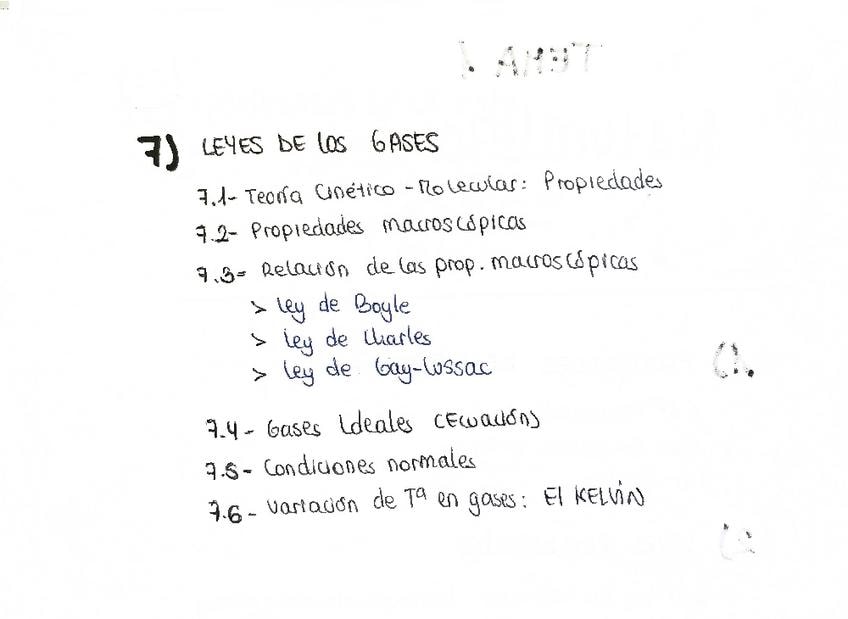 7) LEYES DE LOS GASES
7.1- Teoría Cinético-Molecular: Propiedades
7.2- Propiedades macroscópicas
7.3= Relación de las prop. macroscópicas
> Ley de Boyle
> Ley de Charles
> Ley de Gay-Lussac
7.4- Gases Ideales (Ecuación)
7.5- Condiciones normales
7.6- Variación de Tª en gases: El KELVIN